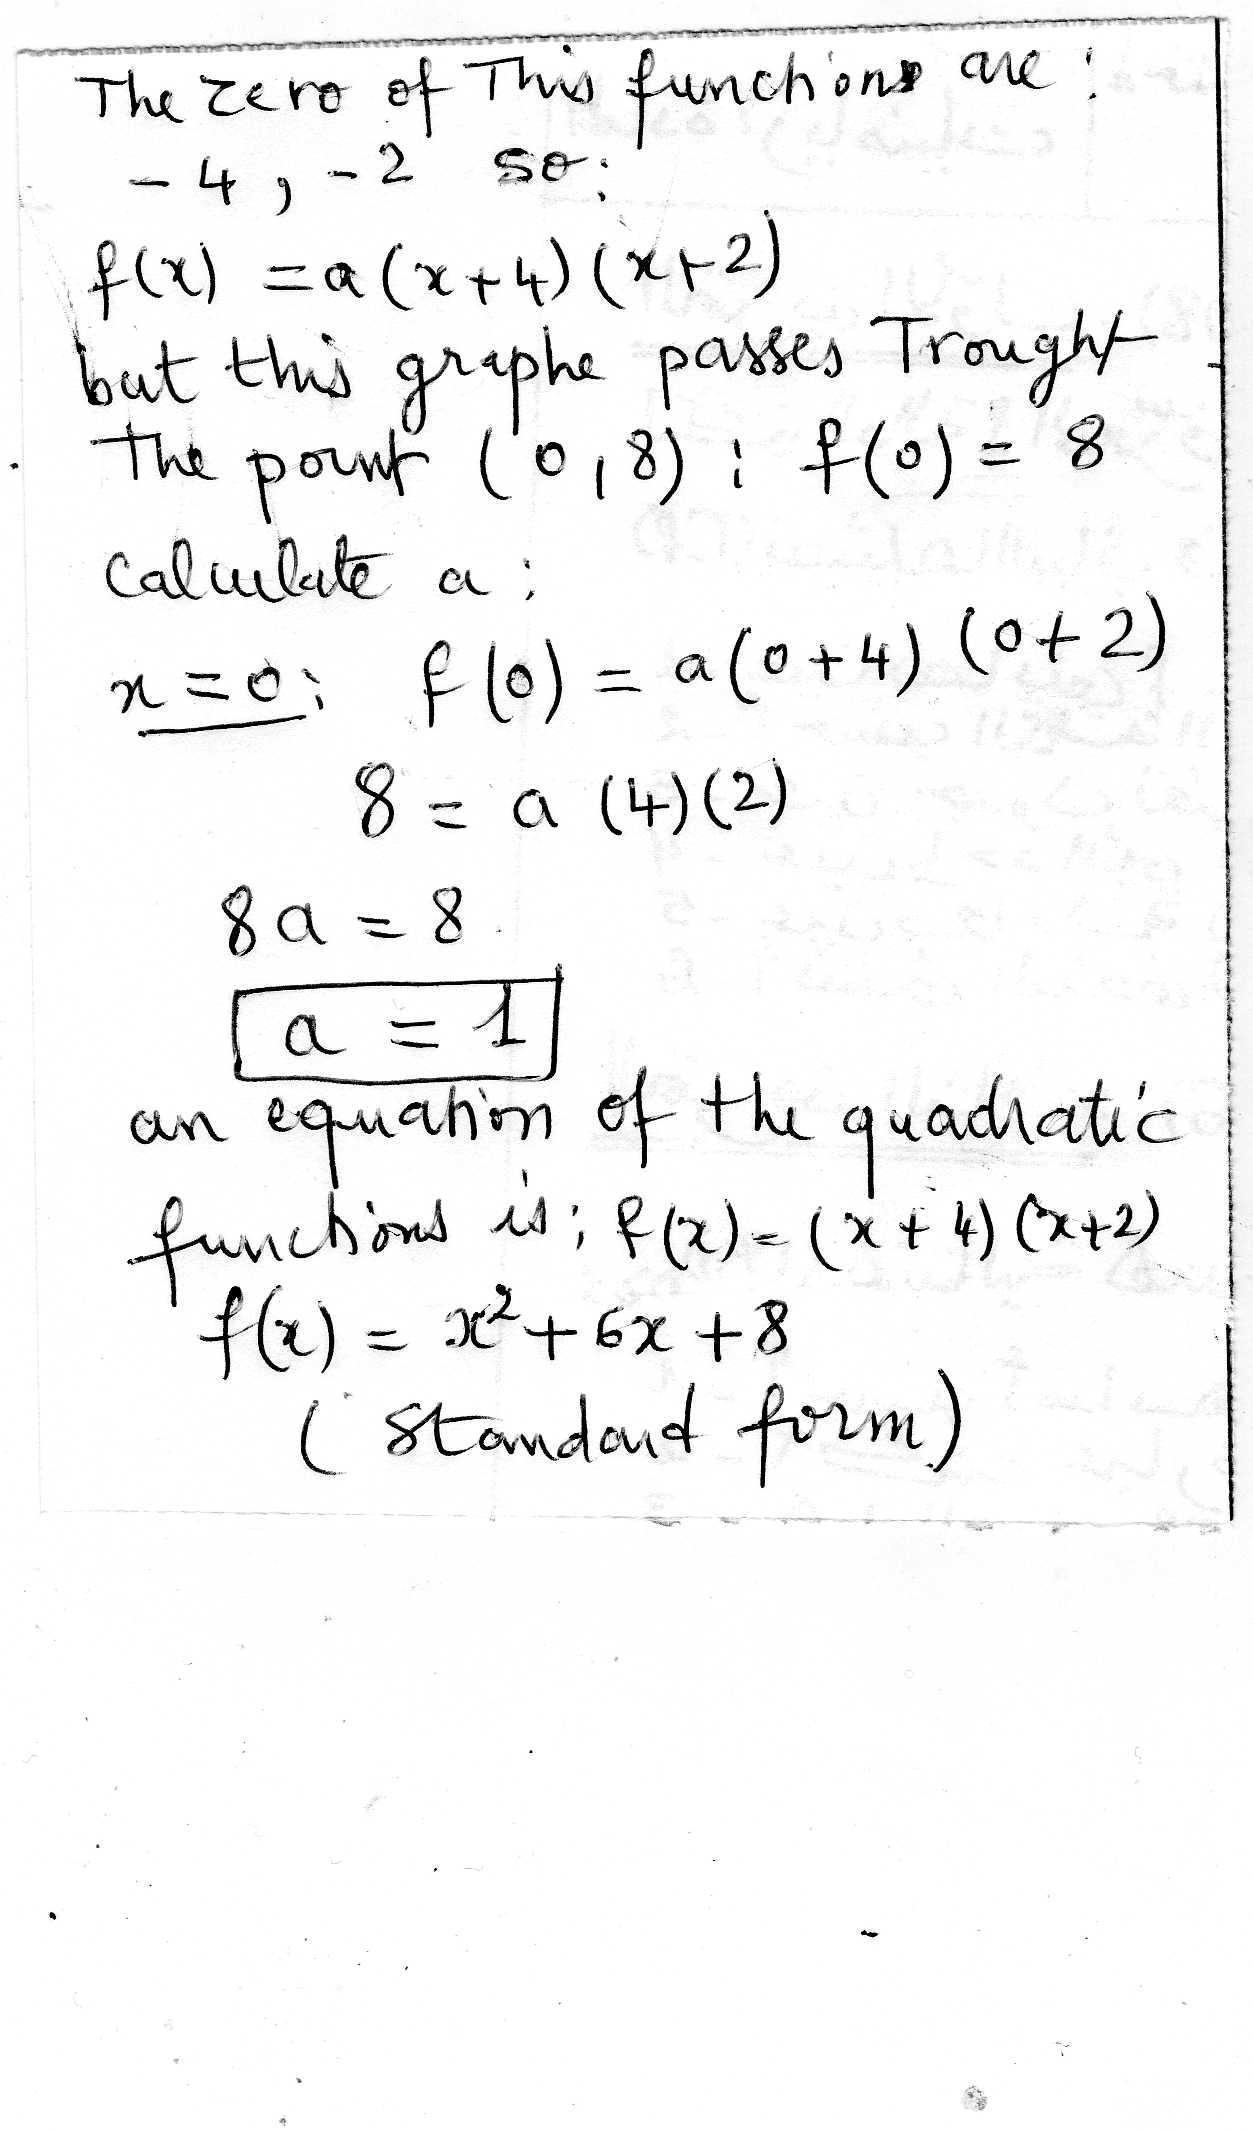 The zero of This functions are :
- 4 , - 2 so :
f(x) = a (x+4) (x+2)
but this graphe passes Trought
The point (0,8) : f(0) = 8
Calculate a :
x = 0 : f(0) = a(0+4) (0+2)
8 = a (4)(2)
8a = 8
a = 1
an equation of the quadratic
functions is : f(x) = (x+4) (x+2)
f(x) = x² + 6x + 8
( Standard form )